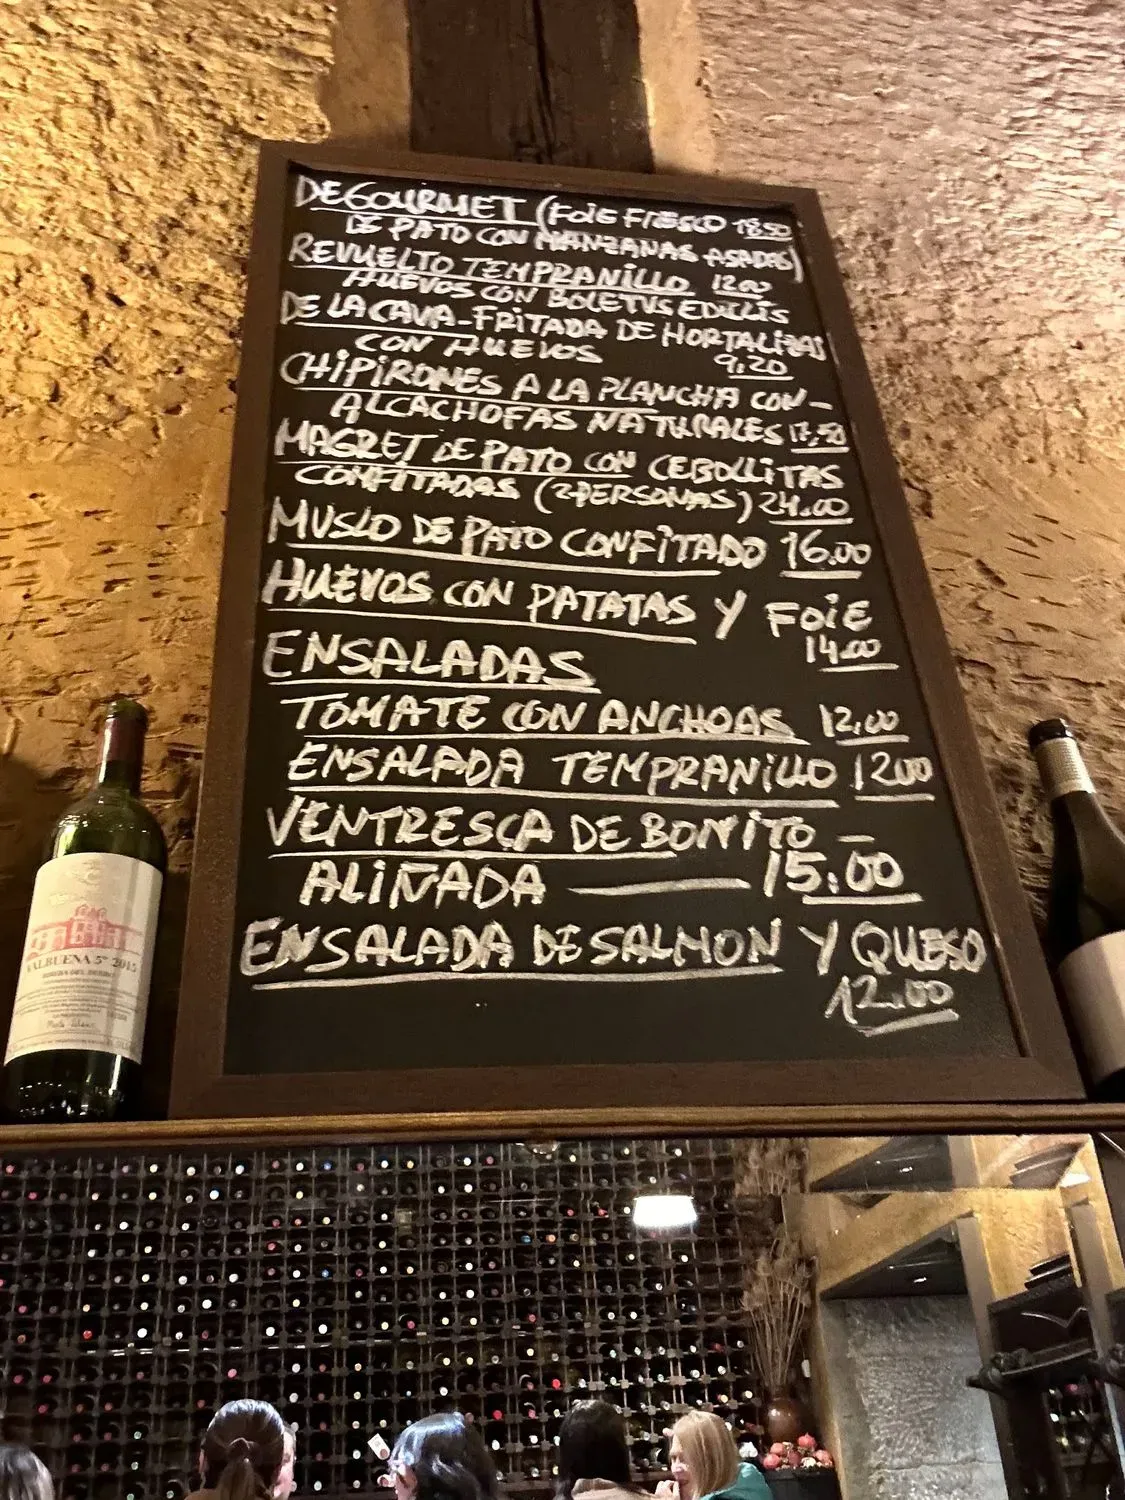 DEGOURMET (FOIE FRESCO 18.50
DE PATO CON MANZANAS ASADAS)
REVUELTO TEMPRANILLO 12.00
HUEVOS CON BOLETUS EDULIS
DE LA CAVA-FRITADA DE HORTALIZAS
CON HUEVOS 9,20
CHIPIRONES A LA PLANCHA CON-
ALCACHOFAS NATURALES 17,50
MAGRET DE PATO CON CEBOLLITAS
CONFITADAS (2 PERSONAS) 24.00
MUSLO DE PATO CONFITADO 16.00
HUEVOS CON PATATAS Y FOIE
14.00
ENSALADAS
TOMATE CON ANCHOAS 12,00
ENSALADA TEMPRANILLO 12.00
VENTRESCA DE BONITO -
ALIÑADA — 15.00
ENSALADA DE SALMON Y QUESO
12.00
VALBUENA 5º 2015
RIBERA DEL DUERO